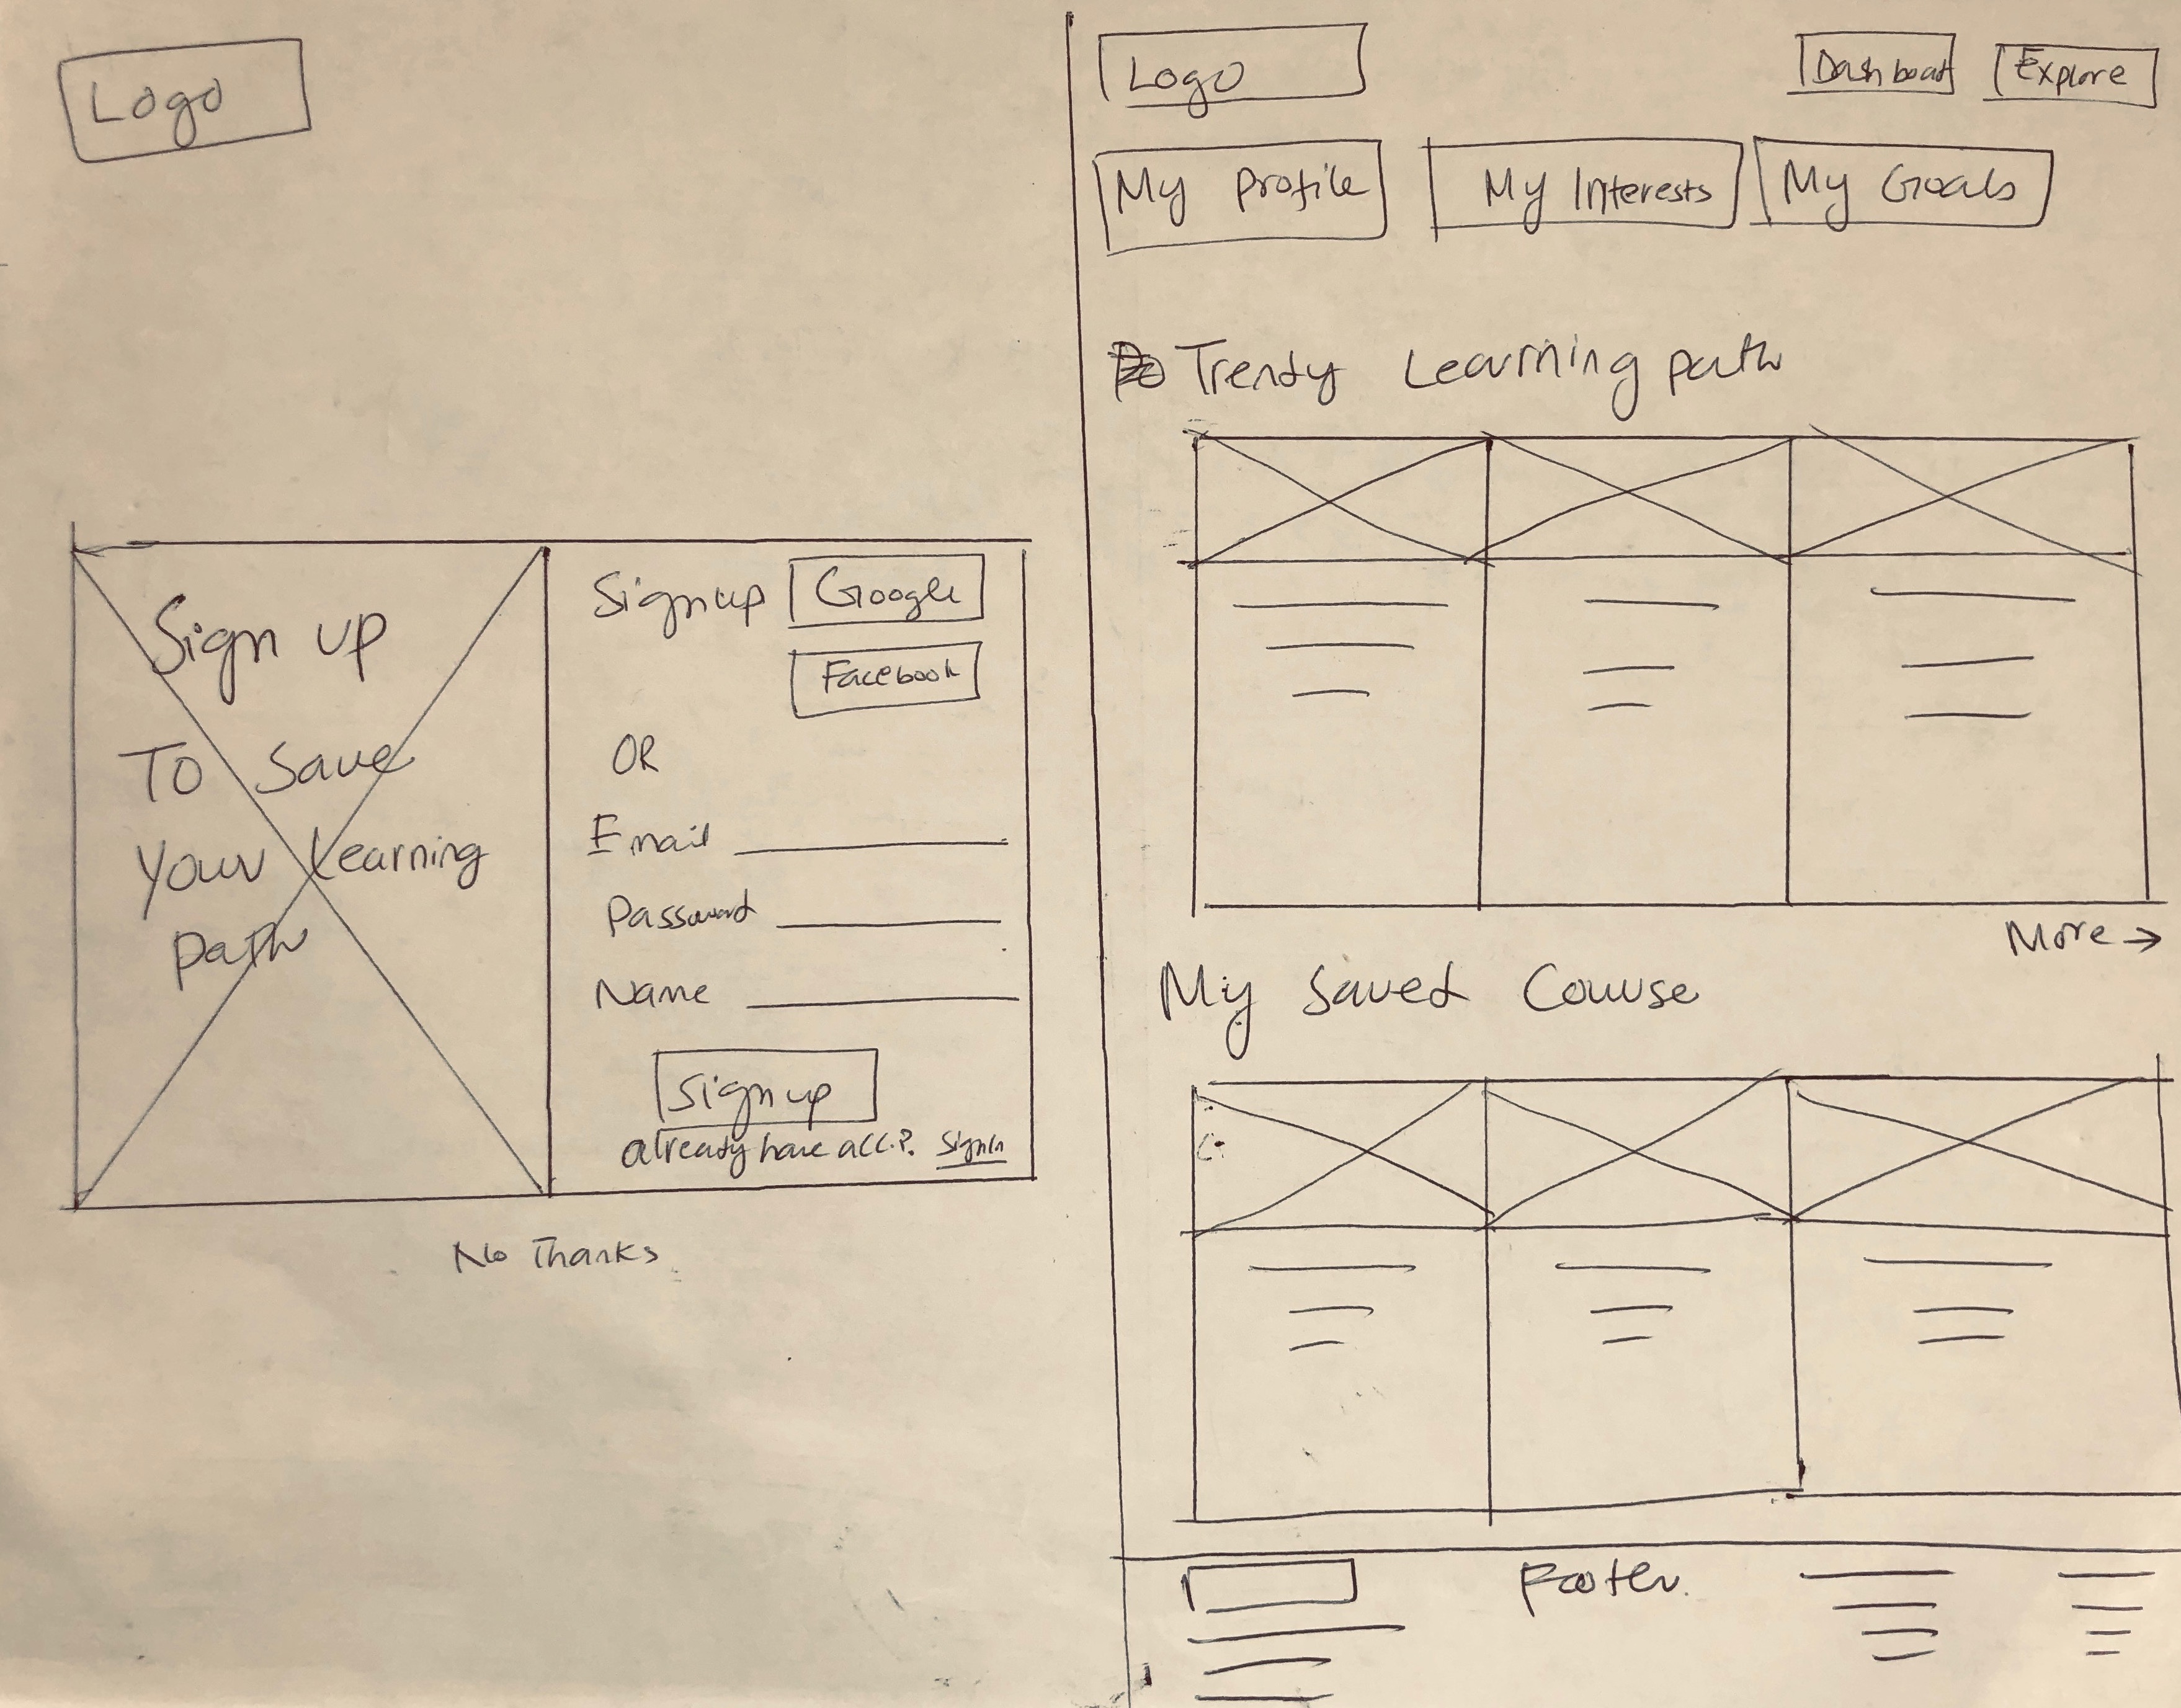 Logo
Sign up
To Save
Your Learning
path
Signup Google
Facebook
OR
Email
Password
Name
Sign up
already have acc.? SignIn
No Thanks
Logo
Dashboard
Explore
My Profile
My Interests
My Goals
Trendy Learning path
More →
My Saved Course
Footer.